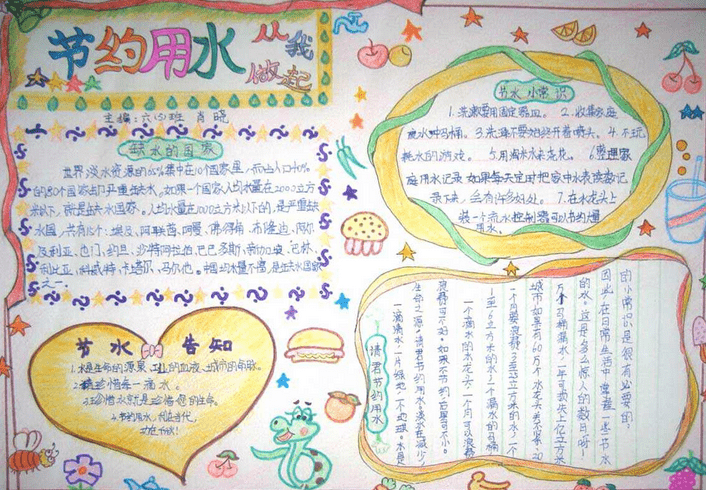 节约用水
从我
做起
主编:六(4)班 肖晓
缺水的国家
世界淡水资源的65%集中在10个国家里,而占人口40%
的80个国家却严重缺水,如果一个国家人均水量在2000立方
米以下,就是缺水国家。人均水量在1000立方米以下的,是严重缺
水国,共有15个:埃及、阿联酋、阿曼、佛得角、布隆迪、阿尔
及利亚、也门、约旦、沙特阿拉伯、巴巴多斯、新加坡、记林、
利比亚、科威特、卡塔尔、马尔他。中国均水量不富,是缺水国家
之一。
节水的告知
1.水是生命的源泉、工业的血液、城市的命脉。
2.请珍惜每一滴水。
3.珍惜水就是珍惜您的生命。
4.节约用水,利在当代,
功在千秋!
节水小常识
1.洗漱要用固定器皿。 2.收集家庭
废水冲马桶。 3.洗澡不要始终开着喷头。 4.不玩
耗水的游戏。 5.用淘米水来浇花。 6.整理家
庭用水记录,如果每天定时把家中水表读数记
录下来,会有许多好处。 7.在水龙头上
装一个流水控制器可以节约增
用水。
请君节约用水
一滴清水,一片绿地,一个地球。水是
生命之源,请君节约用水,淡水在减少,
浪费无处不在,如果不节约后果可不小。
一个滴水的水龙头,一个月可以浪费
1至6立方米的水;一个漏水的马桶
一个月要浪费3至25立方米的水;一个
城市如果有60万个水龙头关不紧、20
万个马桶漏水,一年可损失上亿立方米
的水。这是多么惊人的数目呀!
因此,在日常生活中掌握一些节水
的小常识是很有必要的。